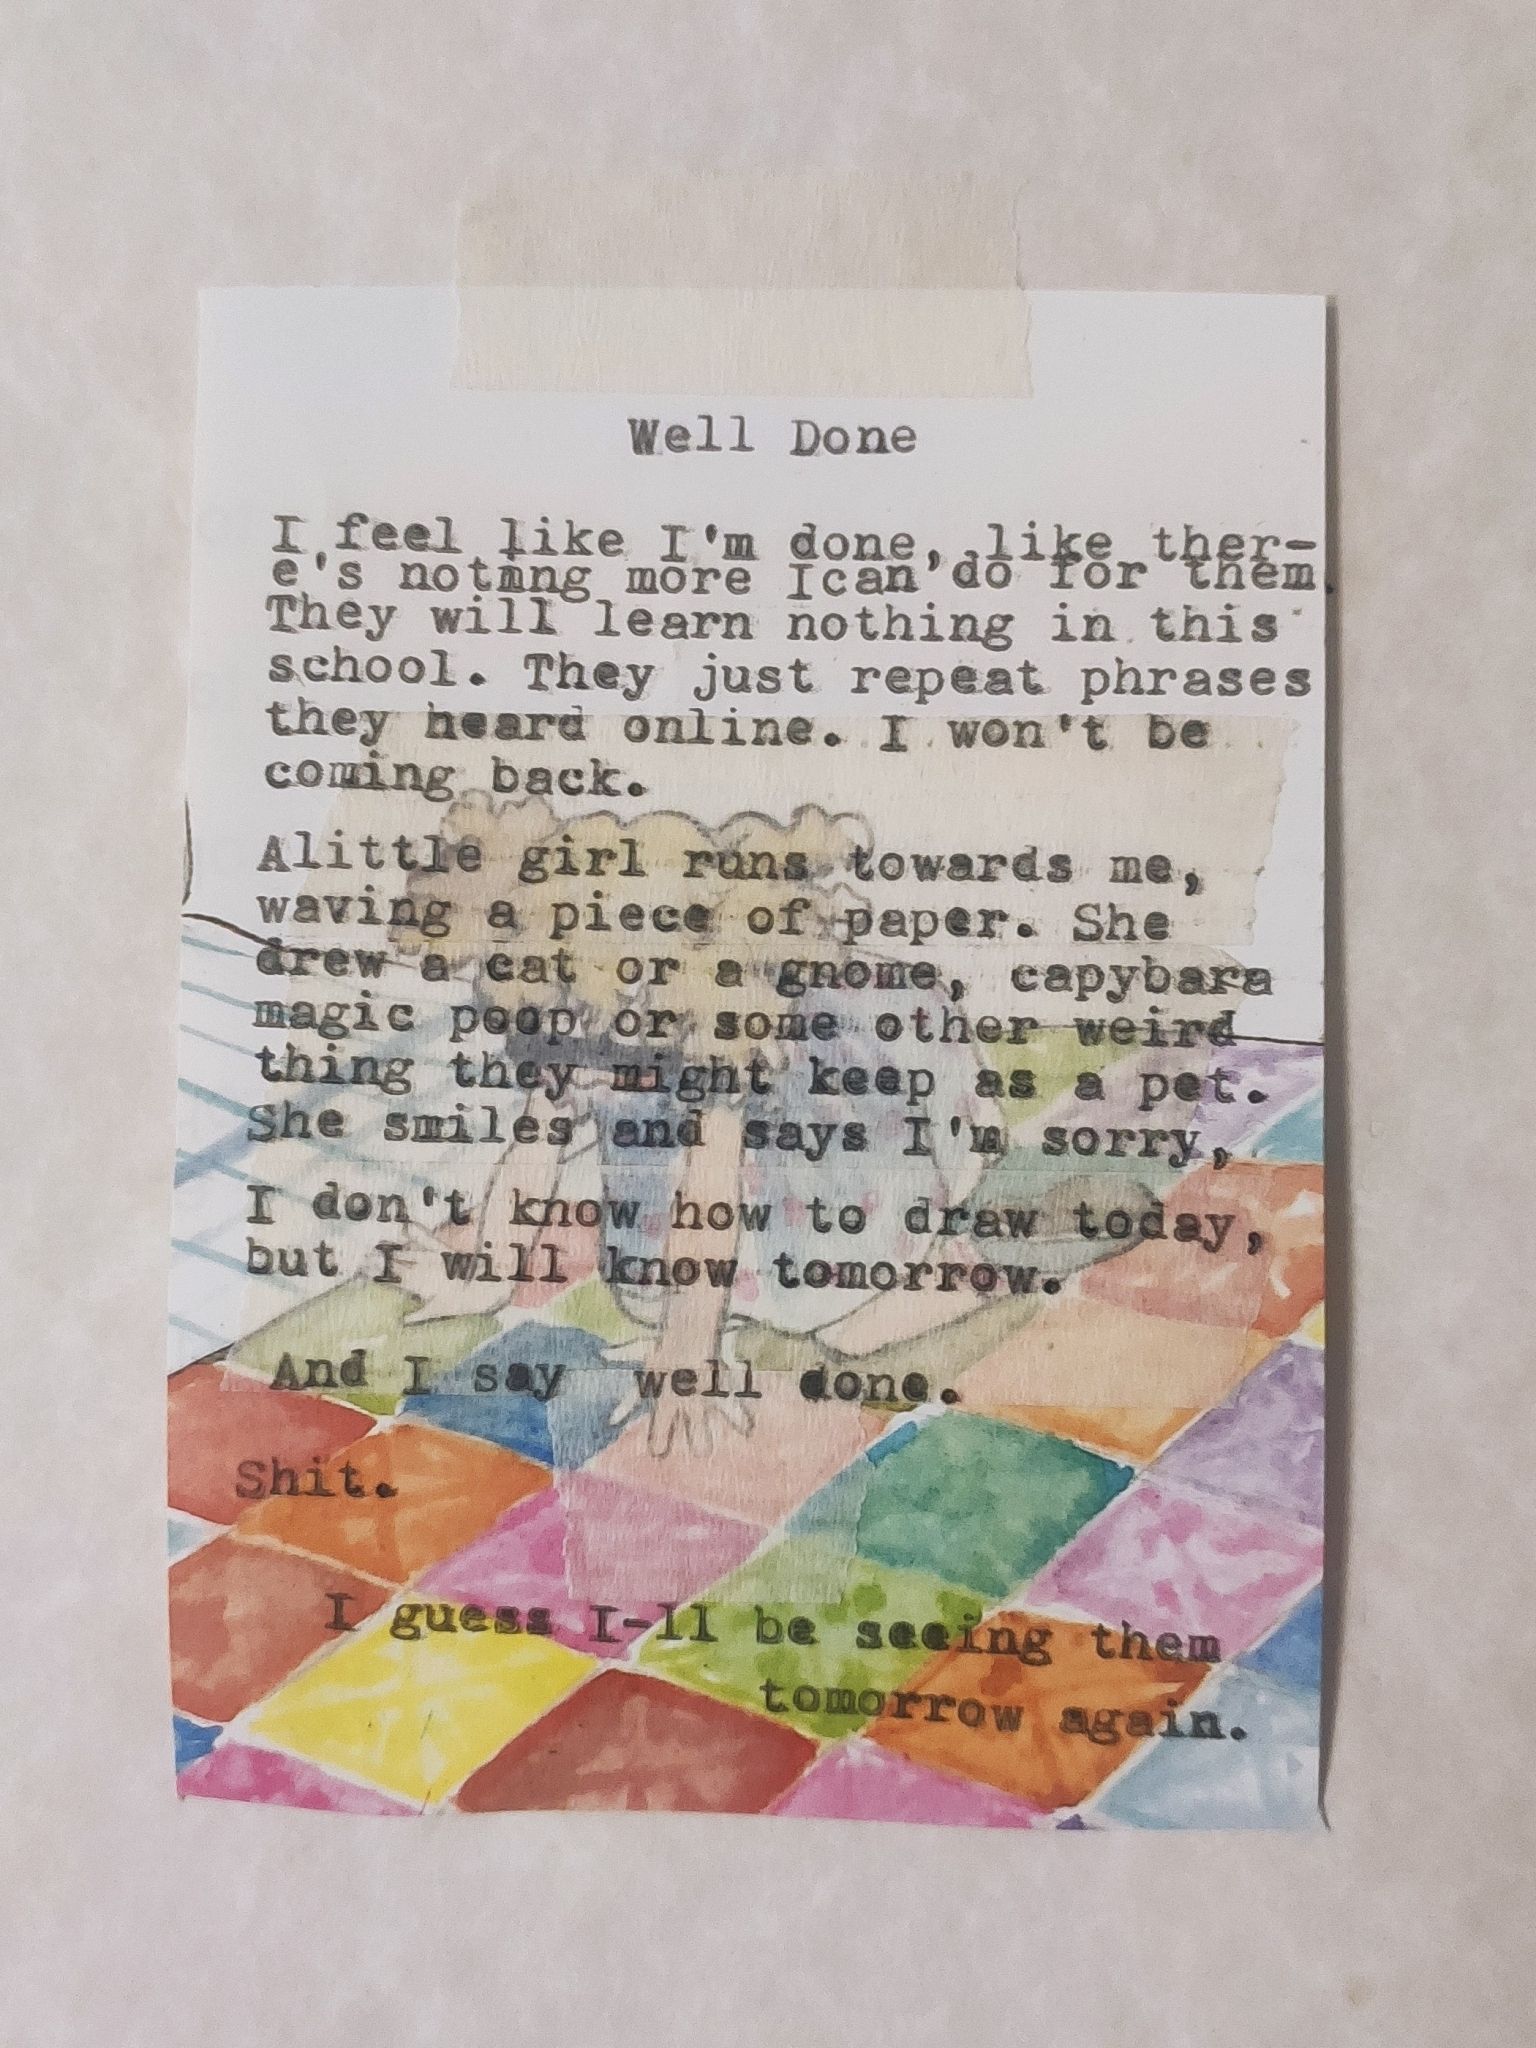 Well Done
I feel like I'm done, like ther-
e's notmng more Ican'do for them.
They will learn nothing in this
school. They just repeat phrases
they heard online. I won't be
coming back.
Alittle girl runs towards me,
waving a piece of paper. She
drew a cat or a gnome, capybara
magic poop or some other weird
thing they might keep as a pet.
She smiles and says I'm sorry,
I don't know how to draw today,
but I will know tomorrow.
And I say well done.
Shit.
I guess I-ll be seeing them
tomorrow again.